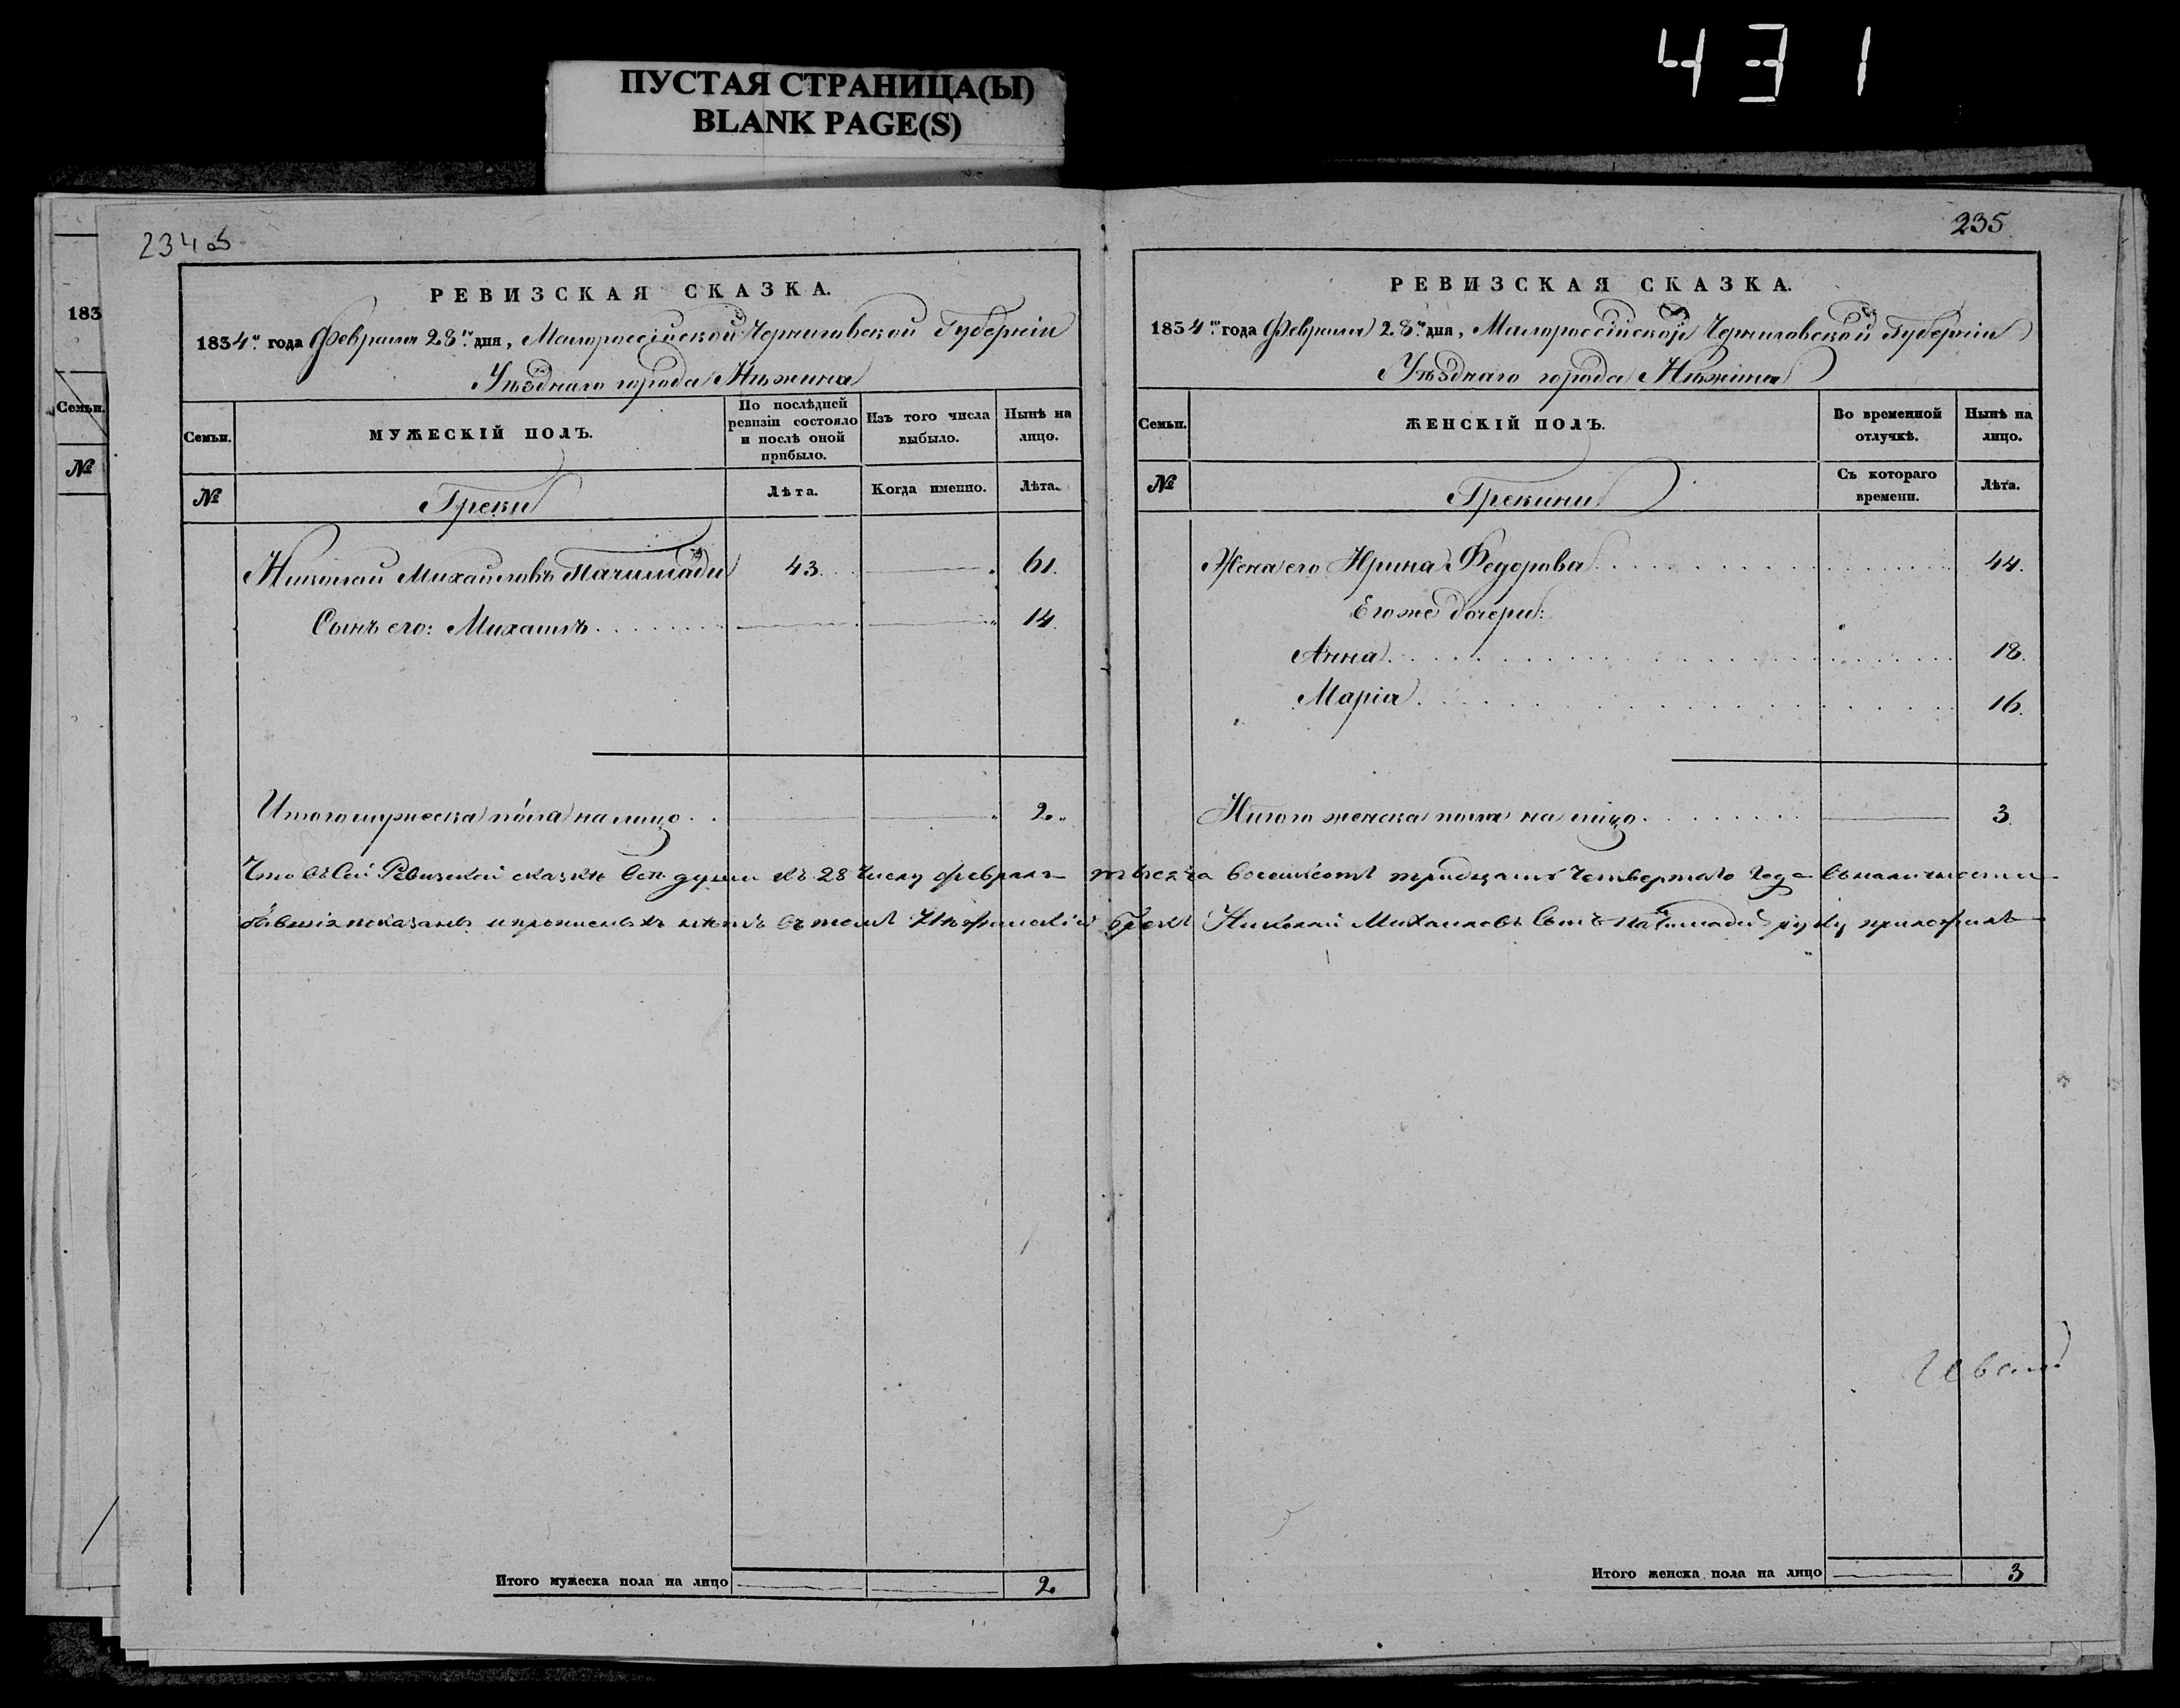 431
ПУСТАЯ СТРАНИЦА(Ы)
BLANK PAGE(S)
234 об
183
Семьи.
№
РЕВИЗСКАЯ СКАЗКА.
1834го года Февраля 28го дня, Малороссійской Черниговской Губерніи
Уѣзднаго города Нѣжина
Семьи.
МУЖЕСКІЙ ПОЛЪ.
По послѣдней ревизіи состояло и послѣ оной прибыло.
Изъ того числа выбыло.
Нынѣ на лицо.
№
Греки
Лѣта.
Когда именно.
Лѣта.
Николай Михайловъ 43. 61.
Сынъ его: Михаилъ 14
Итого мужеска пола на лицо 2.
Итого мужеска пола на лицо 2.
235
РЕВИЗСКАЯ СКАЗКА.
1834го года Февраля 28го дня, Малороссійской Черниговской Губерніи
Уѣзднаго города Нѣжина
Семьи.
ЖЕНСКІЙ ПОЛЪ.
Во временной отлучкѣ.
Нынѣ на лицо.
№
Грекини
Съ котораго времени.
Лѣта.
Жена его Ирина Федорова 44.
Его же дочери:
Анна 18.
Марія 16.
Итого женска пола на лицо 3.
Что въ сей Ревизской сказки всѣ души къ 28 числу февраля мѣсяца восемьсотъ тридцать четвертаго года въ наличности
бывшія показаны и прописныхъ нѣтъ въ томъ Нѣжинскій Грекъ Николай Михаиловъ сынъ руку приложилъ
Итого женска пола на лицо 3